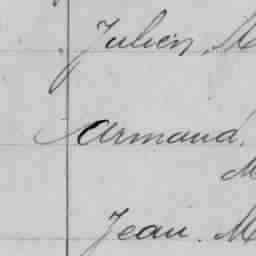 Julien, M
Armand.
M
Jean. M